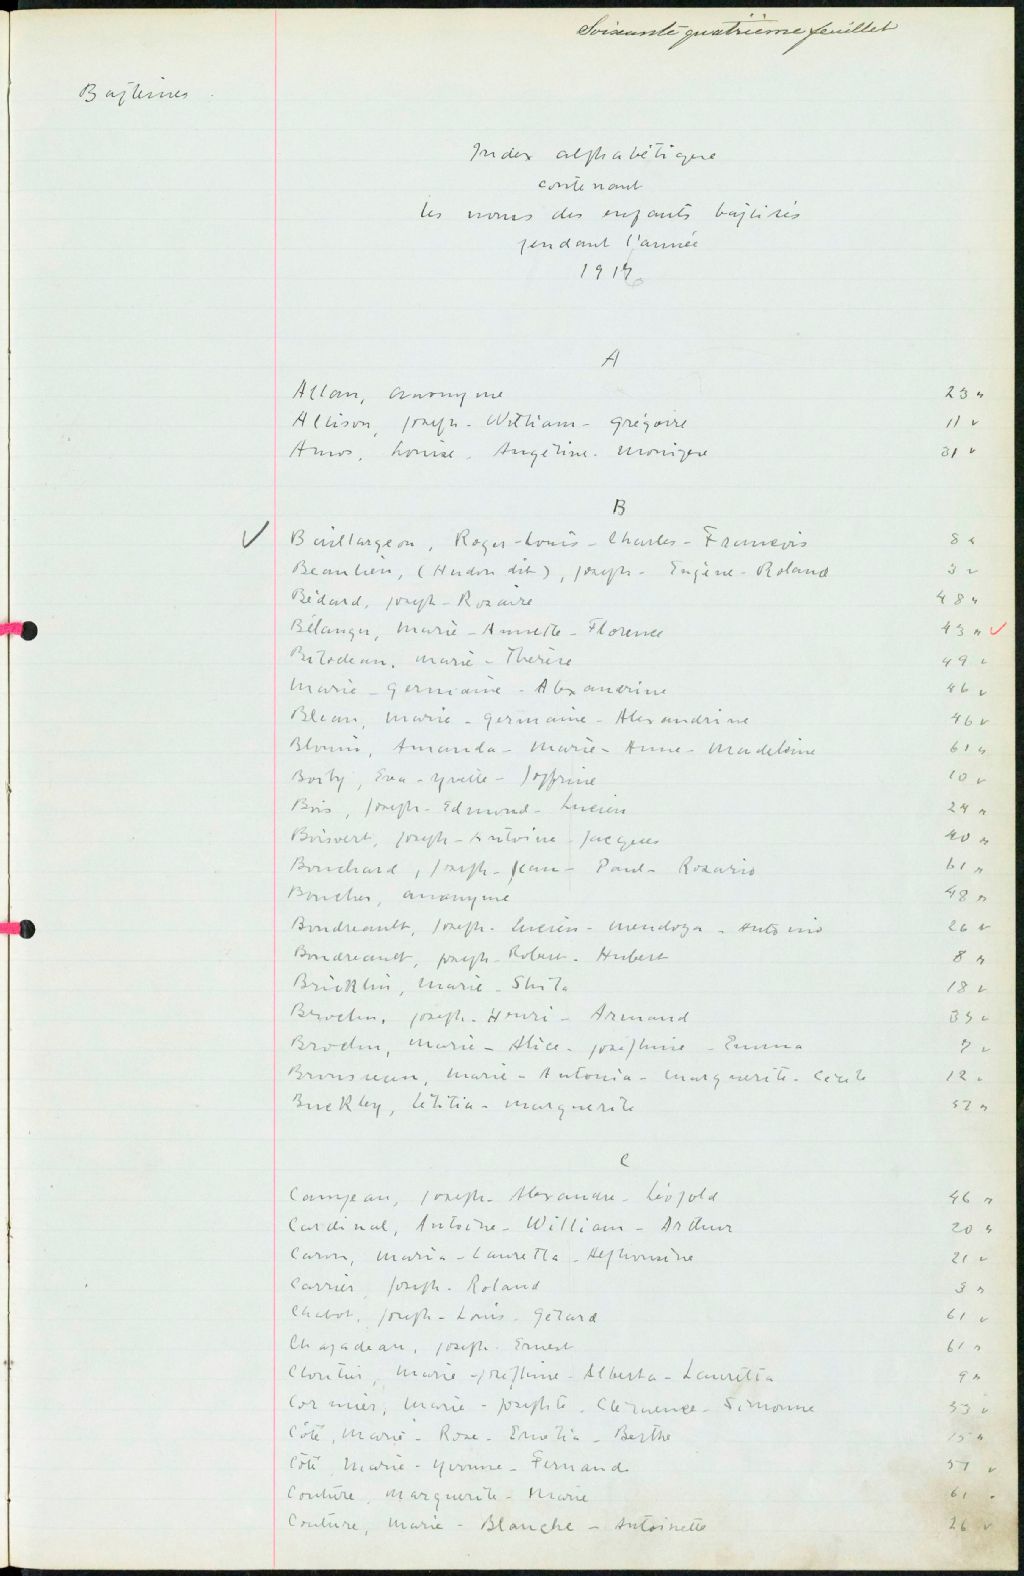 Soixante quatrième feuillet
Baptêmes
Index alphabétique
contenant
les noms des enfants baptisés
pendant l'année
1916
A
Allan, anonyme 23 r
Allison, Joseph - William - Grégoire 11 v
Amos, Louise - Angéline - Monique 31 v
B
✓ Baillargeon, Roger - Louis - Charles - François 8 v
Beaulieu, (Hudon dit), Joseph - Eugène - Roland 3 v
Bédard, Joseph - Rosaire 48 r
Bélanger, Marie - Annette - Florence 43 r ✓
Bilodeau, Marie - Thérèse 49 v
Marie - Germaine - Alexandrine 46 v
Bleau, Marie - Germaine - Alexandrine 46 v
Blouin, Amanda - Marie - Anne - Madeleine 61 r
Eva - Yvette - 10 v
Bois, Joseph - Edmond - Lucien 24 r
Boisvert, Joseph - Antoine - Jacques 40 r
Bouchard, Joseph - Jean - Paul - Rosario 61 r
Boucher, anonyme 48 r
Boudreault, Joseph - Lucien - Mendoza - Antonio 26 v
Boudreault, Joseph - Robert - Hubert 8 r
Bricklin, Marie - 18 v
Brochu, Joseph - Henri - Armand 39 v
Brochu, Marie - Alice - Joséphine - Emma 7 v
Brousseau, Marie - Antonia - Marguerite - Cécile 12 v
Buckley, Létitia - Marguerite 57 r
C
Campeau, Joseph - Alexandre - Léopold 46 r
Cardinal, Antoine - William - Arthur 20 r
Caron, Maria - Lauretta - Alphonsine 21 v
Carrier, Joseph - Roland 3 r
Chabot, Joseph - Louis - Gérard 61 v
Chapadeau, Joseph - Ernest 61 r
Cloutier, Marie - Joséphine - Alberta - Lauretta 9 r
Cormier, Marie - Josephte - Clémence - Simonne 53 v
Côté, Marie - Rose - Emélia - Berthe 15 r
Côté, Marie - Yvonne - Fernande 57 v
Couture, Marguerite - Marie 61
Couture, Marie - Blanche - Antoinette 26 v